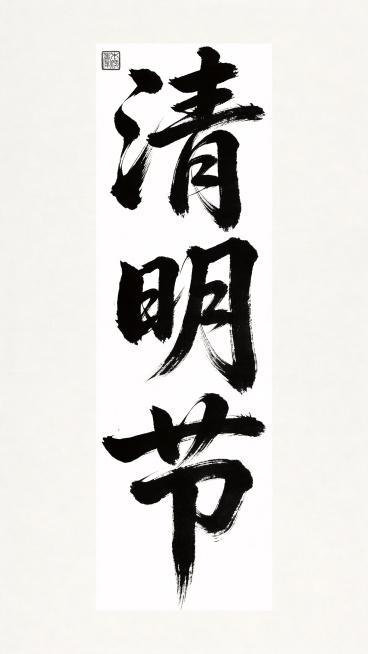 清明节